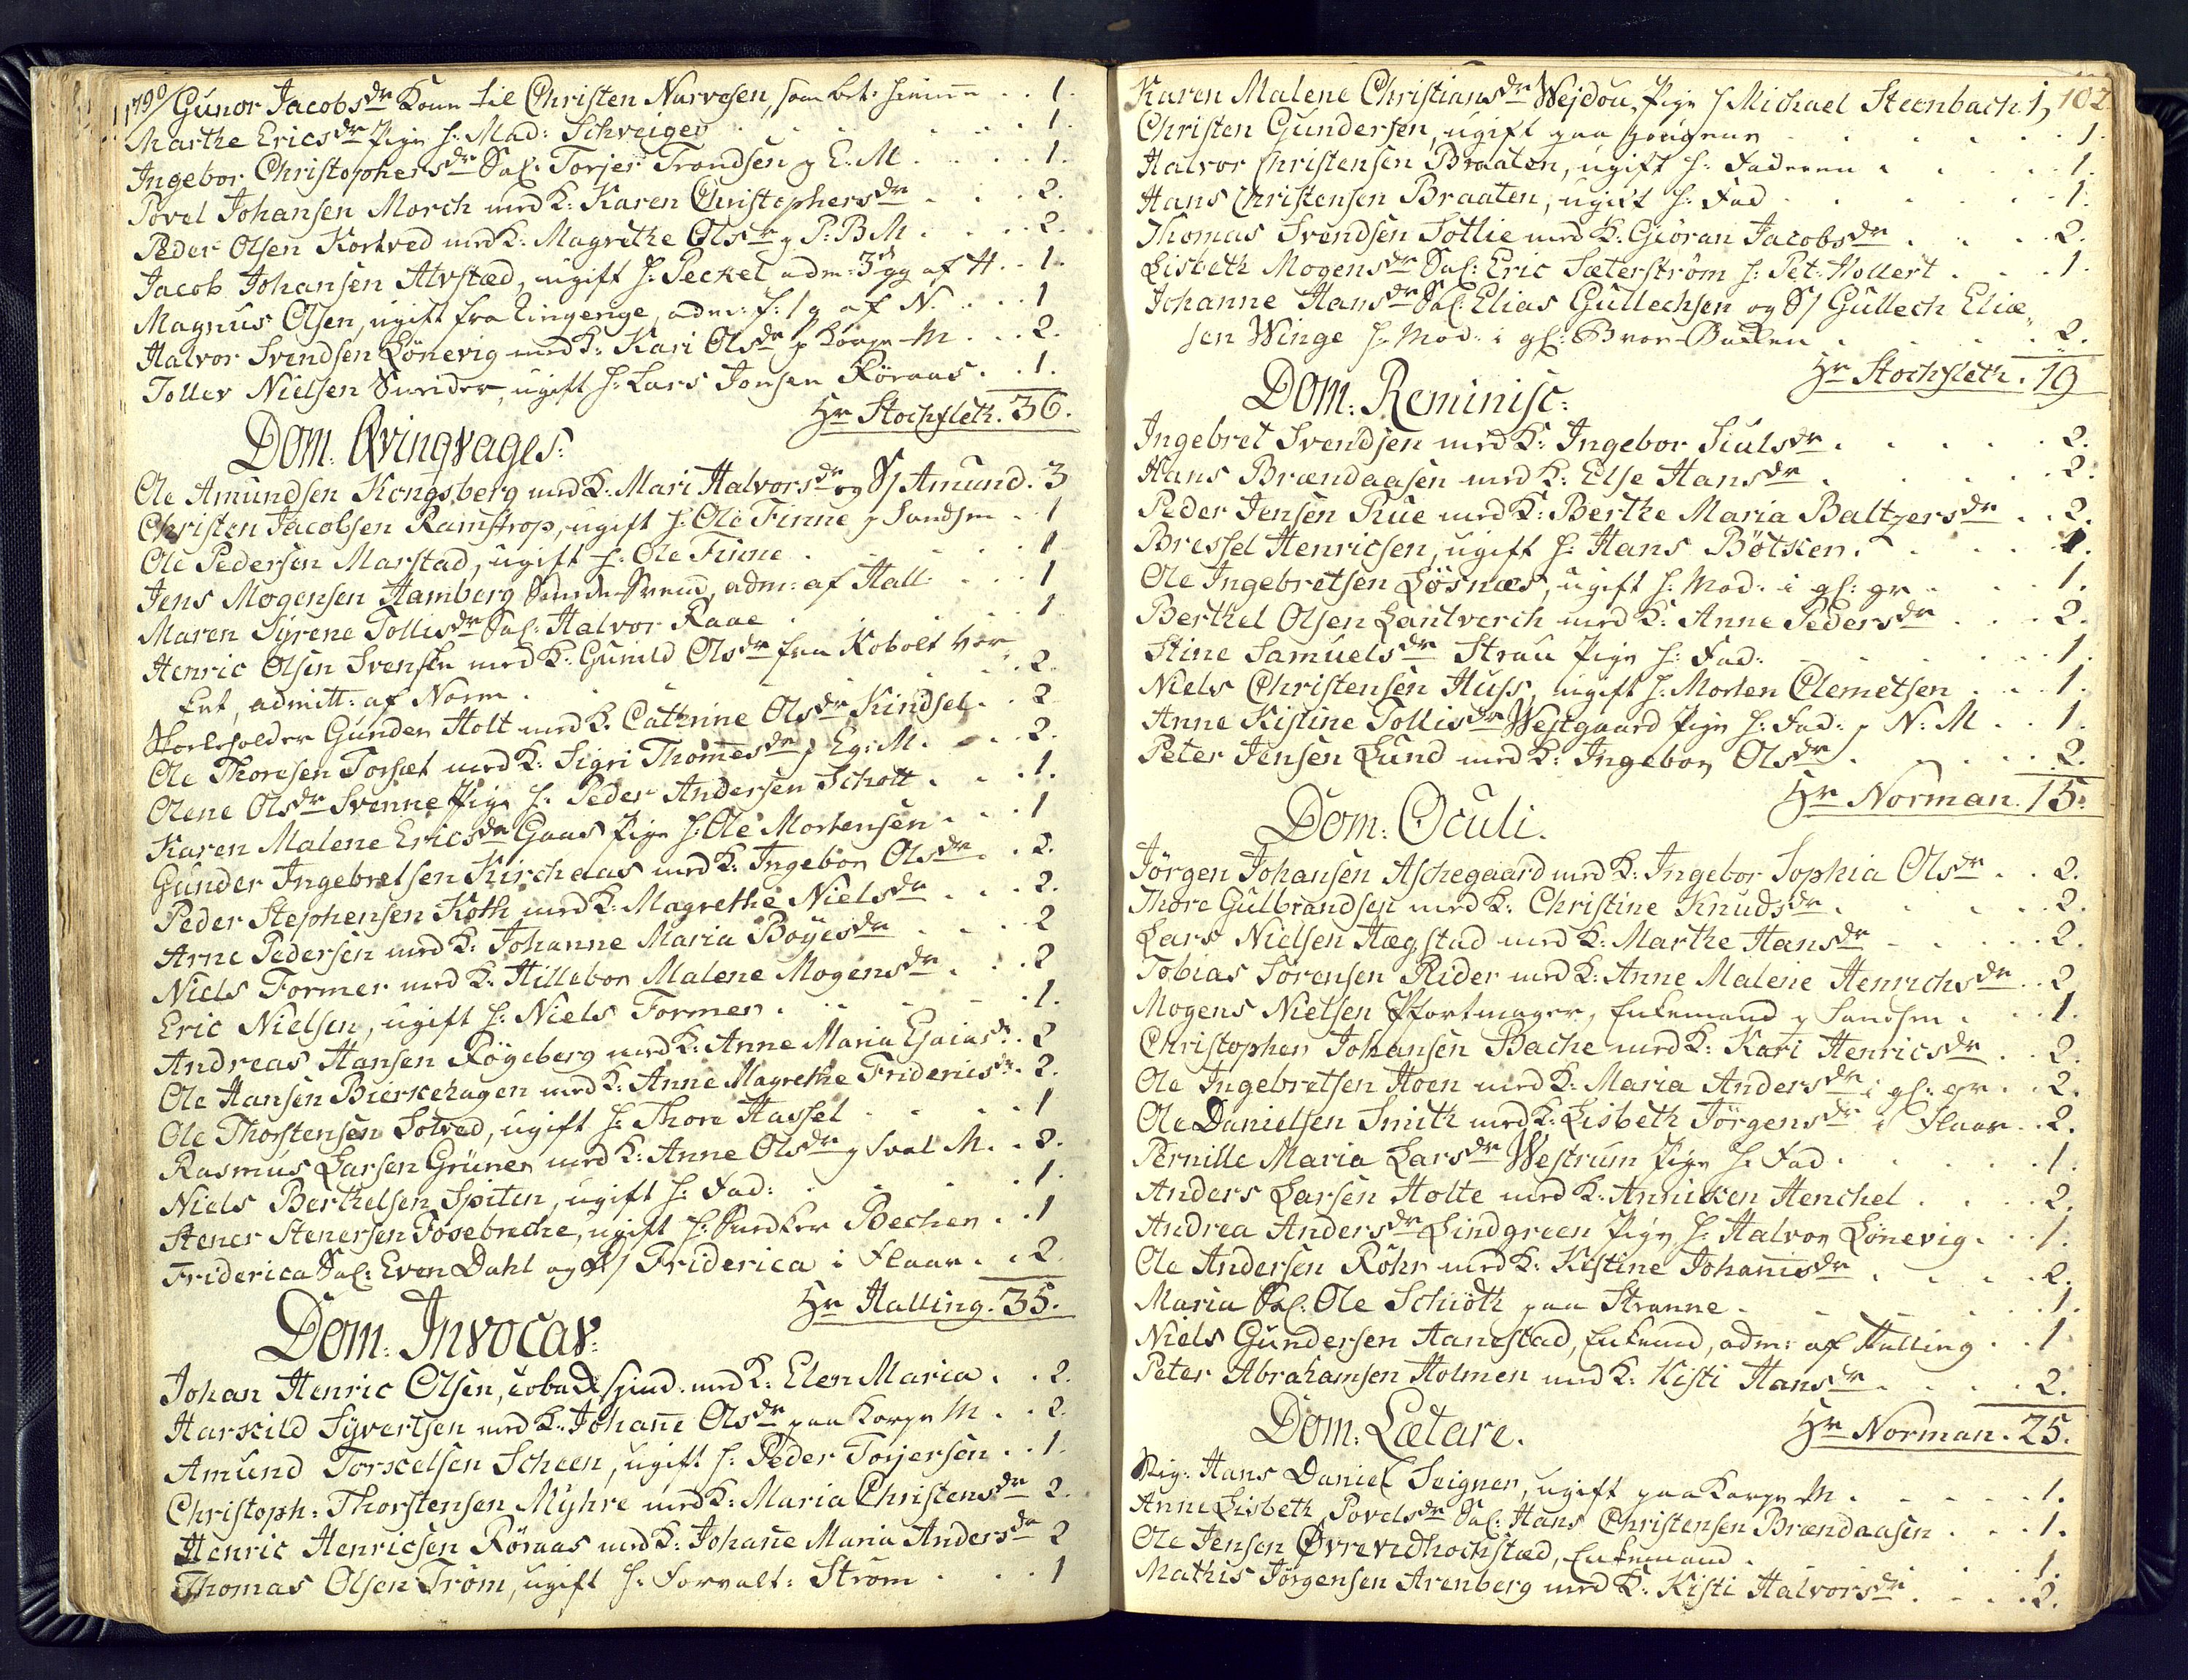 1790/ Gunor Jacobsdr Kone til Christen Narvesen, som bet: hiemme . . 1.
Marthe Ericsdr Pige h: Mad: Schveiger . . 1.
Ingebor Christophersdr Sal: Torjer Trondsen p E: M . . . 1.
Povel Johansen Morch med K: Karen Christophersdr . . 2.
Peder Olsen Kortved med K: Magrethe Olsdr p P: B M . . . 2.
Jacob Johansen Alvstæd, ugift h: Peckel adm: 3de gg af H . . 1.
Magnus Olsen, ugift fra Eingerige, adm: f: 1 g af N. . . . 1
Halvor Svendsen Lönevig med K: Kari Olsdr p Korpr M . . . 2.
Tollev Nielsen Sneider, ugift h: Lars Jonsen Röraas . . 1.
Hr Stochfleth. 36.
Dom. Qvinqvages:
Ole Amundsen Kongsberg med K: Mari Halvorsdr og S/ Amund . 3
Christen Jacobsen Ramstrop, ugift h: Ole Finne p Sandsvr . . 1
Ole Pedersen Marstad, ugift h: Ole Finne . . . 1
Jens Mogensen Hamberg Svend, adm: af Hall: . . . 1
Maren Syrene Tollisdr Sal: Halvor Raae . . 1
Henric Olsen Svenske med K: Gunild Olsdr fra Kobolt Ver-
ket, admitt: af Norm . . . 2.
Gunder Holt med K: Cathrine Olsdr Kindsel . . 2
Ole Thoresen Torsæt med K: Sigri Thomesdr p Eg: M . . . 2.
Olene Olsdr Svenne Pige h: Peder Andersen Schott . . . 1.
Karen Malene Ericsdr Gaas Pige h: Ole Mortensen . . . 1
Gunder Ingebretsen Kirchaas med K: Ingebor Olsdr . . 2.
Peder Stephensen Koth med K: Magrethe Nielsdr . . . 2.
Arne Pedersen med K: Johanne Maria Böyesdr . . . 2
Niels Former med K: Hillebor Malene Mogensdr . . . 2
Eric Nielsen, ugift h: Niels Former . . . 1.
Andreas Hansen Rögeberg med K: Anne Maria Esaiasdr . 2
Ole Hansen Bierkehagen med K: Anne Magrethe Fridericsdr . 2.
Ole Thorstensen Solved, ugift h: Thore Hassel . . . 1
Rasmus Larsen Grüner med K: Anne Olsdr p Sval M. . 2.
Niels Berthelsen Spiten, ugift h: Fad: . . . 1.
Stener Stenersen Fosebreche, ugift h: Snedker Becher . . 1
Friderica Sal: Even Dahl og D/ Friderica i Flaar . . 2
Hr Halling. 35.
Dom. Invocav:
Johan Henric Olsen, med K: Elen Maria . . 2.
Harkild Syvertsen med K: Johane Olsdr paa Korpr M . . 2.
Amund Torkelsen Scheen, ugift h: Peder Torjersen . . 1.
Christoph: Thorstensen Myhre med K: Maria Christensdr 2.
Henric Henricsen Röraas med K: Johane Maria Andersdr 2
Thomas Olsen Tröm, ugift h: Forvalt: Ström . . . 1
Karen Malene Christiansdr Wejdou, Pige h Michael Steenbach. 1, 102
Christen Gundersen, ugift paa . . . 1.
Halvor Christensen Braaten, ugift h: Faderen . . . 1.
Hans Christensen Braaten, ugift h: Fad . . . 1.
Thomas Svendsen Sottie med K: Giöran Jacobsdr . . . 2.
Lisbeth Mogensdr Sal: Eric Sæterström h: Pet. Hollert . . . 1.
Johanne Hansdr Sal: Elias Gullechsen og S/ Gullech Eliæ-
sen Winge h: Mod: i gl: Bron-Backen . . . 2.
Hr Stochfleth. 19
Dom: Reminisc:
Ingebret Svendsen med K: Ingebor Siulsdr . . . 2.
Hans Brændaasen med K: Else Hansdr . . . 2.
Peder Jensen Rue med K: Berthe Maria Baltzersdr . . 2.
Bressel Henricsen, ugift h: Hans Bötker . . . 1.
Ole Ingebretsen Lösnæs, ugift h: Mod: i gl: gr . . 1.
Berthel Olsen Lantverch med K: Anne Pedersdr . . . 2.
Stine Samuelsdr Strau Pige h: Fad: . . . 1.
Niels Christensen Huss, ugift h: Morten Clemetsen . . . 1.
Anne Kistine Tollisdr Westgaard Pige h: Fad: p N: M . . 1.
Peter Jensen Lund med K: Ingebor Olsdr . . . 2.
Hr Norman. 15.
Dom: Oculi.
Jörgen Johansen Aschegaard med K: Ingebor Sophia Olsdr . . 2.
Thore Gulbrandsen med K: Christine Knudsdr . . . 2.
Lars Nielsen Hægstad med K: Marthe Hansdr . . . 2.
Tobias Sörensen Rider med K: Anne Malene Henrichsdr . . 2
Mogens Nielsen Pfortmager, Enkemand p Sandsvr . . . 1.
Christopher Johansen Bache med K: Kari Henricsdr . . 2.
Ole Ingebretsen Hoen med K: Maria Andersdr i gl: gr . . 2.
Ole Danielsen Smith med K: Lisbeth Jörgensdr i Flaar . . 2.
Pernille Maria Larsdr Westrum Pige h: Fad . . . 1.
Anders Larsen Holte med K: Anniken Henchel . . . 2.
Andrea Andersdr Lindgreen Pige h: Halvor Lönevig . . 1.
Ole Andersen Röhr med K: Kistine Johanisdr . . . 2.
Maria Sal: Ole Schiöth paa Stranne . . . 1.
Niels Gundersen Hanestad, Enkemd, adm: af Halling . . 1
Peter Abrahamsen Holmen med K: Kisti Hansdr . . . 2.
Hr Norman. 25.
Dom: Lætare.
Sig: Hans Daniel Seigner, ugift paa Korpr M . . . 1.
Anne Lisbeth Povelsdr Sal: Hans Christensen Brændaasen . . . 1.
Ole Jensen Øvrevidhochstæd, Enkemand . . . 1.
Mathis Jörgensen Arenberg med K: Kisti Halvorsdr . . . 2.